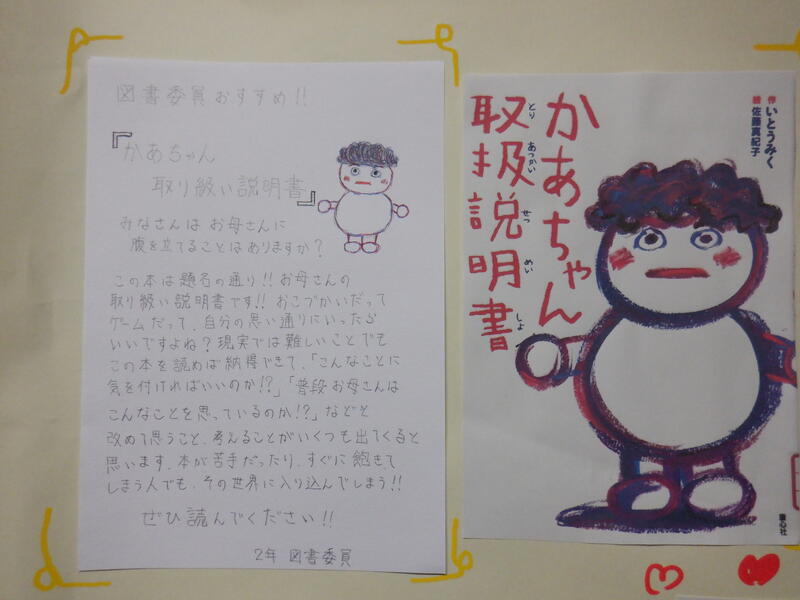 図書委員おすすめ!!
『かあちゃん
取り級い説明書』
みなさんは お母さんに
腹を立てることはありますか?
この本は題名の通り!! お母さんの
取り級い説明書です!! おこづかいだって
ゲームだって、自分の思い通りにいったら
いいですよね? 現実では難しいことでも
この本を読めば納得できて、「こんなことに
気を付ければいいのか!?」「普段お母さんは
こんなことを思っているのか!?」などと
改めて思うこと、考えることがいくつも出てくると
思います。本が苦手だったり、すぐに飽きて
しまう人でも、その世界に入り込んでしまう!!
ぜひ読んでください!!
2年 図書委員
かあちゃん
取扱説明書
とり あつかい せつ めい しょ
作 いとうみく
絵 佐藤真紀子
童心社